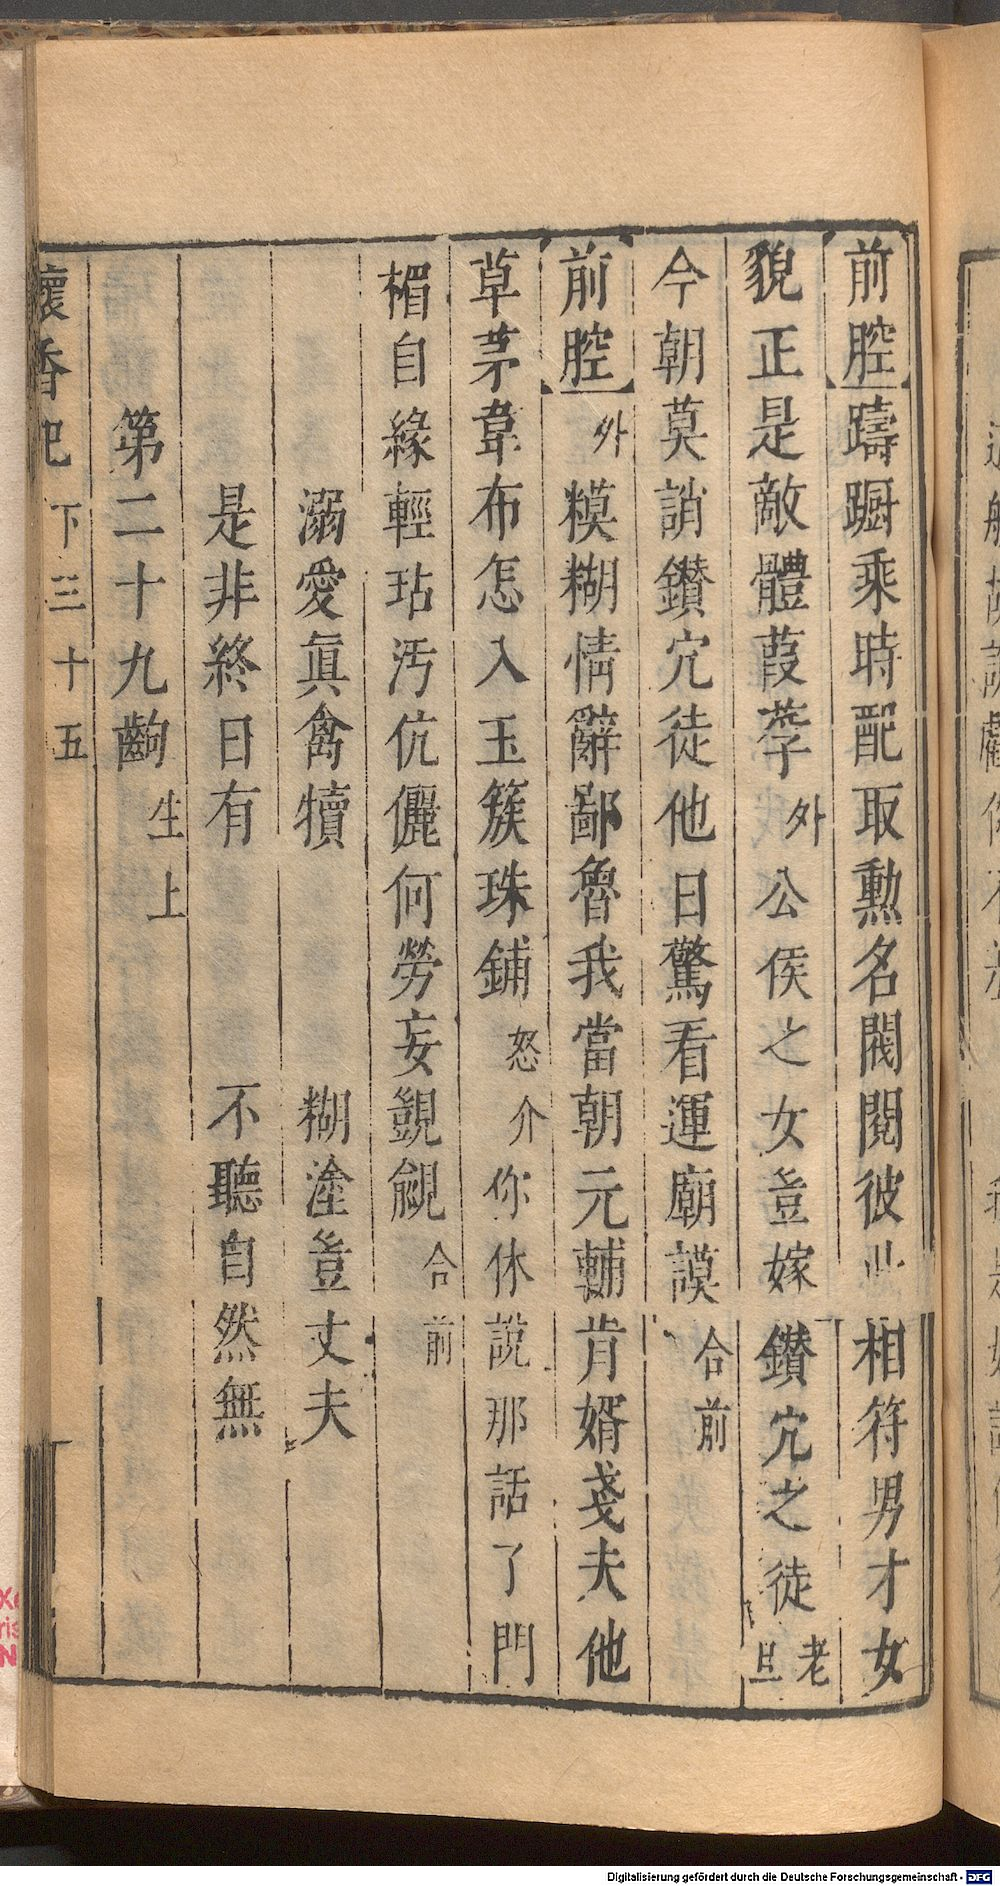 前腔躊蹰乘時配取勲名閥閱彼此相符男才女
貌正是敵體葭莩外公侯之女豈嫁鑚穴之徒老旦
今朝莫誚鑚穴徒他日驚看運廟謨合前
前腔外糢糊情辭鄙魯我當朝元輔肯婿戔夫他
草茅韋布怎入玉簇珠鋪怒介你休說那話了門
楣自緣輕玷汚伉儷何勞妄覬覦合前
溺愛眞禽犢 糊塗豈丈夫
是非終日有 不聽自然無
第二十九齣生上
懷香記 下 三十五
Digitalisierung gefördert durch die Deutsche Forschungsgemeinschaft - DFG